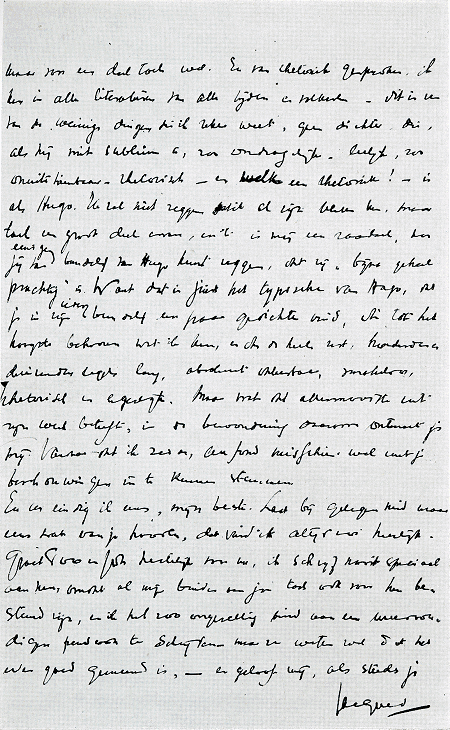 maar voor een deel toch wel. En van rhetoriek gesproken. ik
ken in alle literaturen van alle tijden en volkeren – dit is een
van de weinige dingen die ik zeker weet, geen dichter die,
als hij niet subliem is, zoo ondragelijk leelijk, zoo
onuitstaanbaar rhetorisch – en welk een rhetoriek! – is
als Hugo. Ik zal niet zeggen dat ik al zijn werken ken, maar
toch een groot deel ervan, en 't is mij een raadsel, hoe
jij van eenigen bundel van Hugo kunt zeggen, dat hij "bijna geheel
prachtig" is. Want dat is juist het typische van Hugo, dat
je in zijn bundels een paar gedichten vind, die tot het
hoogste behooren wat ik ken, en de rest, honderden en
duizenden regels lang, absoluut smakeloos,
rhetorisch en Maar wat dat allermooiste uit
zijn werk betreft, in de bewondering daarvoor ontmoet je
mij. Vandaar dat ik au fond misschien wel met je
beschouwingen in te kunnen stemmen.
En nu eindig ik eens, mijn beste. Laat bij gelegenheid weer
eens wat van je hooren, dat vind ik altijd zoo heerlijk.
Groet hartelijk van me, ik schrijf nooit speciaal
aan hen, omdat al mijn brieven aan jou toch ook voor hen be-
stemd zijn, en ik het zoo ongezellig vind aan een
te schrijven maar ze weten wel dat het
even goed gemeend is, – en geloof mij, als steeds je
Jacques